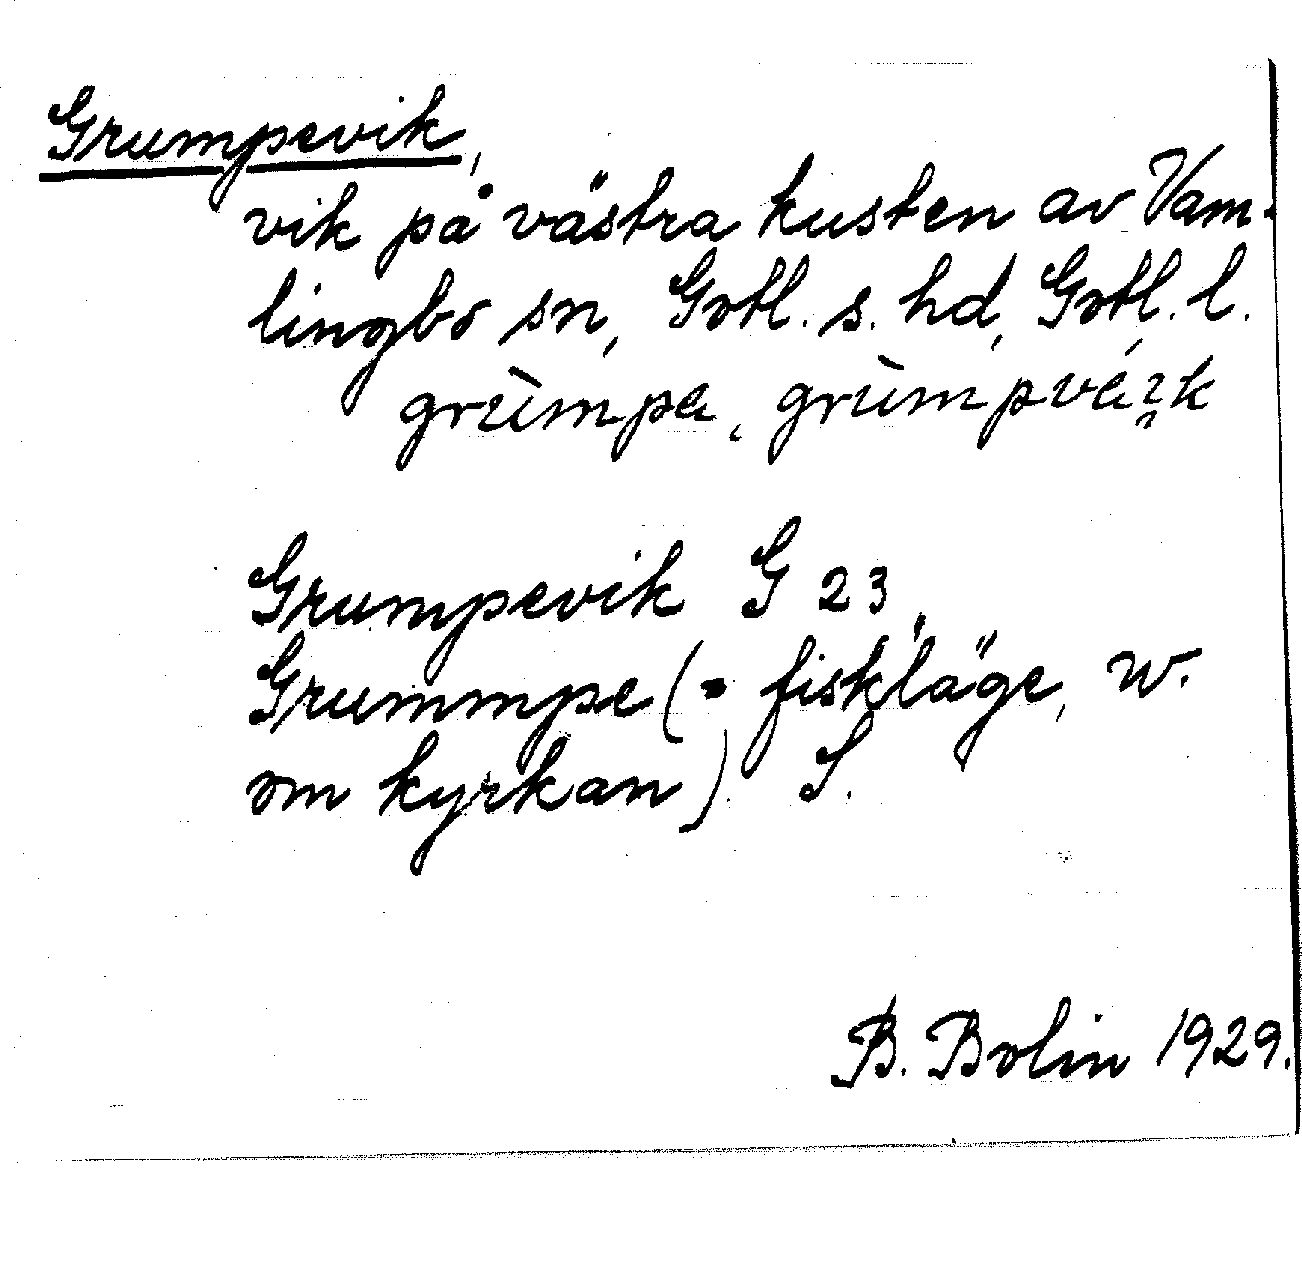 Grumpevik,
vik på västra kusten av Vam-
lingbo sn, Gotl. s. hd, Gotl. l.
grùmpa, grùmpváik
Grumpevik G 23
Grummpe (= fiskläge, w.
om kyrkan) S.
B. Bolin 1929.